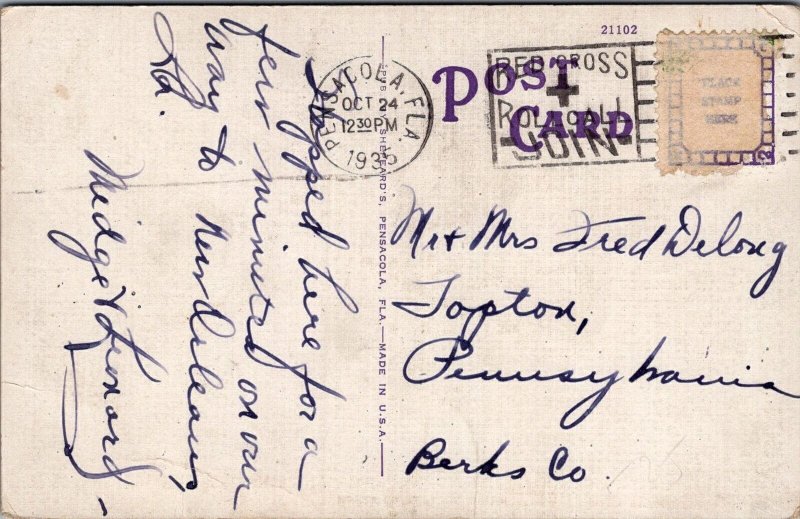 21102
POST
CARD
PENSACOLA, FLA.
OCT 24
12 30 PM
1935
RED CROSS
ROLL CALL
JOIN
PLACE
STAMP
HERE
Stopped here for a
few minutes on our
way to New Orleans,
La.
Midge & Lenord -
Mr & Mrs Fred Delong
Topton,
Pennsylvania
Berks Co.
SHEPPARD'S, PENSACOLA, FLA.—MADE IN U.S.A.